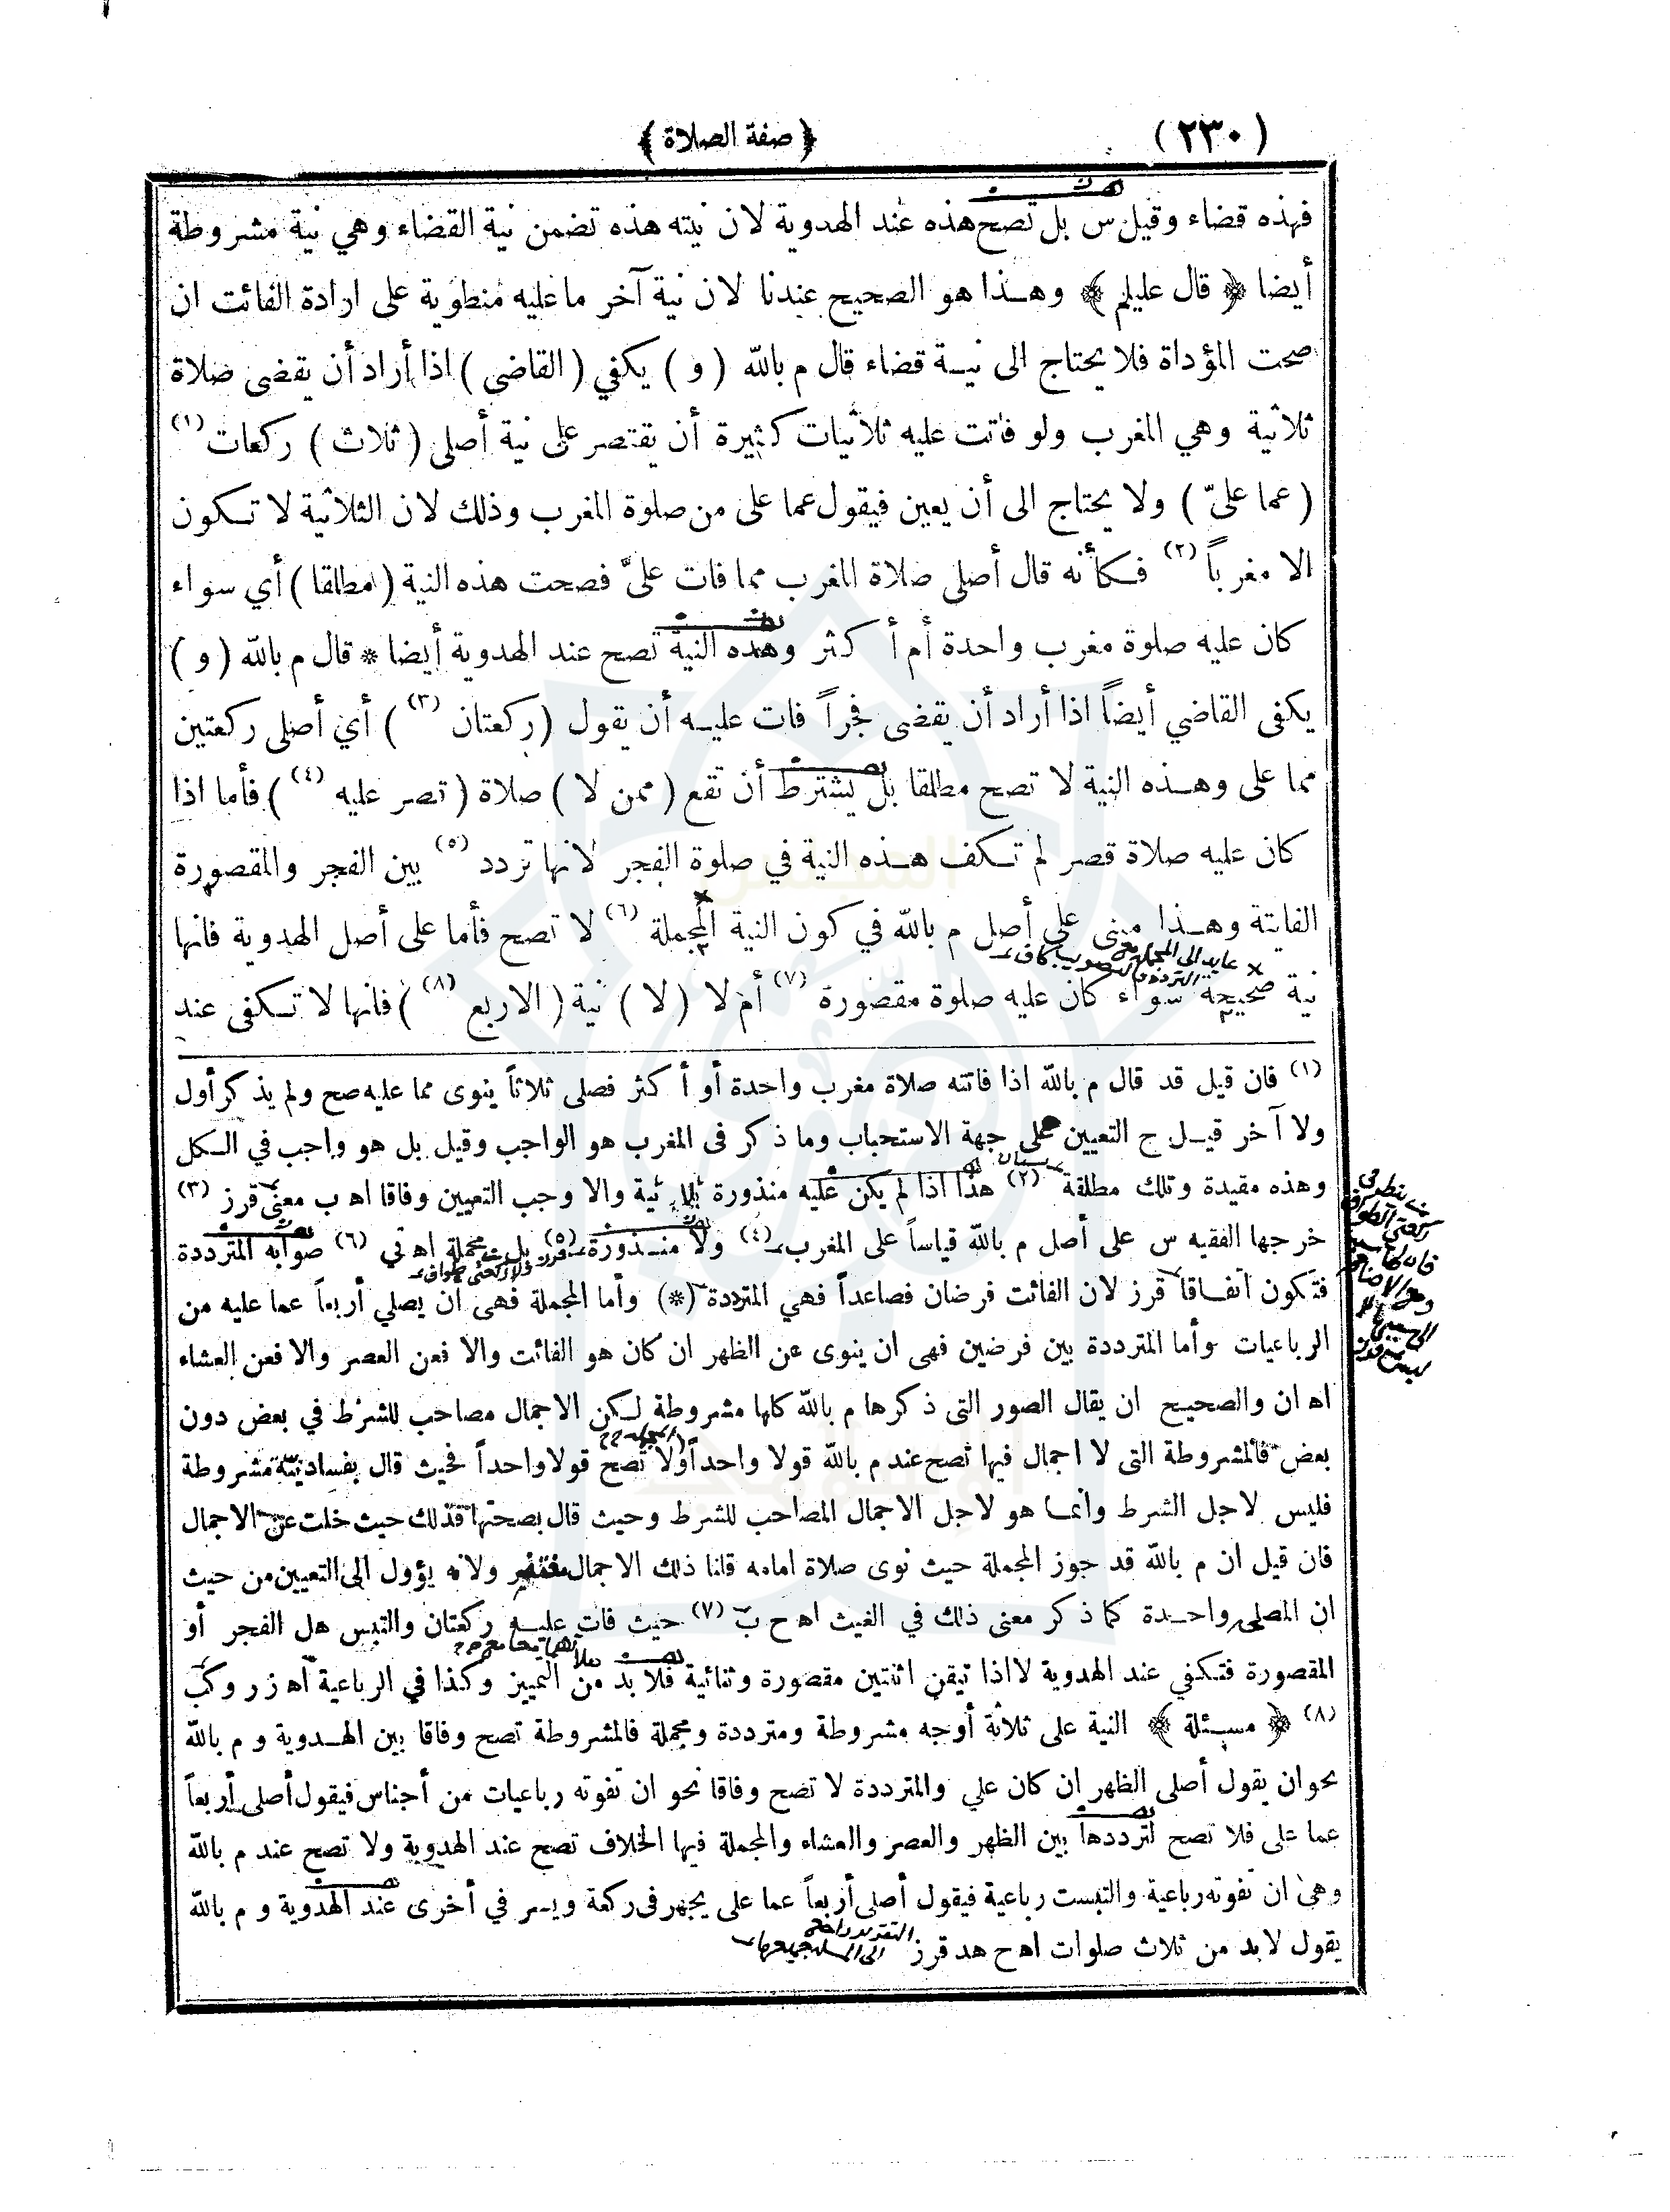 (٢٣٠) ﴿ صفة الصلاة ﴾
فهذه قضاء وقيل س بل تصح هذه عند الهدوية لان نيته هذه تضمن نية القضاء وهي نية مشروطة
أيضا ﴿ قال عليلم ﴾ وهذا هو الصحيح عندنا لان نية آخر ما عليه منطوية على ارادة الفائت ان
صحت المؤداة فلا يحتاج الى نية قضاء قال م بالله ( و ) يكفي ( القاضى ) اذا أراد أن يقضى صلاة
ثلاثية وهي المغرب ولو فاتت عليه ثلاثيات كثيرة أن يقتصر على نية أصلى ( ثلاث ) ركعات (١)
( عما علىّ ) ولا يحتاج الى أن يعين فيقول عما على من صلوة المغرب وذلك لان الثلاثية لا تكون
الا مغرباً (٢) فكأنه قال أصلى صلاة المغرب مما فات علىّ فصحت هذه النية ( مطلقا ) أي سواء
كان عليه صلوة مغرب واحدة أم أكثر وهذه النية تصح عند الهدوية أيضا * قال م بالله ( و )
يكفى القاضي أيضاً اذا أراد أن يقضى فجراً فات عليه أن يقول ( ركعتان (٣) ) أي أصلى ركعتين
مما على وهذه النية لا تصح مطلقا بل يشترط أن تقع ( ممن لا ) صلاة ( قصر عليه (٤) ) فأما اذا
كان عليه صلاة قصر لم تكف هذه النية في صلوة الفجر لانها تردد (٥) بين الفجر والمقصورة
الفايتة وهذا مبنى على أصل م بالله في كون النية المجملة (٦) لا تصح فأما على أصل الهدوية فانها
نية صحيحة سواء كان عليه صلوة مقصورة (٧) أم لا ( لا ) نية ( الاربع (٨) ) فانها لا تكفى عند
(١) فان قيل قد قال م بالله اذا فاتته صلاة مغرب واحدة أو أكثر فصلى ثلاثاً ينوى مما عليه صح ولم يذكر أول
ولا آخر قيل ح التعيين على جهة الاستحباب وما ذكر فى المغرب هو الواجب وقيل بل هو واجب في الكل
وهذه مقيدة وتلك مطلقة (٢) هذا اذا لم يكن عليه منذورة ثلاثية والا وجب التعيين وفاقا اه ب معنى قرز (٣)
خرجها الفقيه س على أصل م بالله قياساً على المغرب (٤) ولا منذورة قرز (٥) بل مجملة اه تي (٦) صوابه المترددة
فتكون اتفاقاً قرز لان الفائت فرضان فصاعداً فهي المترددة (*) وأما المجملة فهى ان يصلي أربعاً عما عليه من
الرباعيات وأما المترددة بين فرضين فهى ان ينوى عن الظهر ان كان هو الفائت والا فعن العصر والا فعن العشاء
اه ان والصحيح ان يقال الصور التى ذكرها م بالله كلها مشروطة لكن الاجمال مصاحب للشرط في بعض دون
بعض فالمشروطة التى لا اجمال فيها تصح عند م بالله قولا واحداً ولا تصح قولا واحداً فحيث قال بفساد نية مشروطة
فليس لاجل الشرط وانما هو لاجل الاجمال المصاحب للشرط وحيث قال بصحتها فذلك حيث خلت عن الاجمال
فان قيل ان م بالله قد جوز المجملة حيث نوى صلاة امامه قلنا ذلك الاجمال مغتفر ولانه يؤول الى التعيين من حيث
ان المصلى واحدة كما ذكر معنى ذلك في الغيث اه ح ب (٧) حيث فات عليه ركعتان والتبس هل الفجر أو
المقصورة فتكفي عند الهدوية لا اذا تيقن اثنتين مقصورة وثنائية فلا بد من التمييز وكذا في الرباعية اه ز ر وكب
(٨) ﴿ مسئلة ﴾ النية على ثلاثة أوجه مشروطة ومترددة ومجملة فالمشروطة تصح وفاقا بين الهدوية و م بالله
نحو ان يقول أصلى الظهر ان كان علي والمترددة لا تصح وفاقا نحو ان تفوته رباعيات من أجناس فيقول أصلى أربعاً
عما على فلا تصح لترددها بين الظهر والعصر والعشاء والمجملة فيها الخلاف تصح عند الهدوية ولا تصح عند م بالله
وهى ان تفوته رباعية والتبست رباعية فيقول أصلى أربعاً عما على يجهر فى ركعة ويسر في أخرى عند الهدوية و م بالله
يقول لا بد من ثلاث صلوات اه ح هد قرز